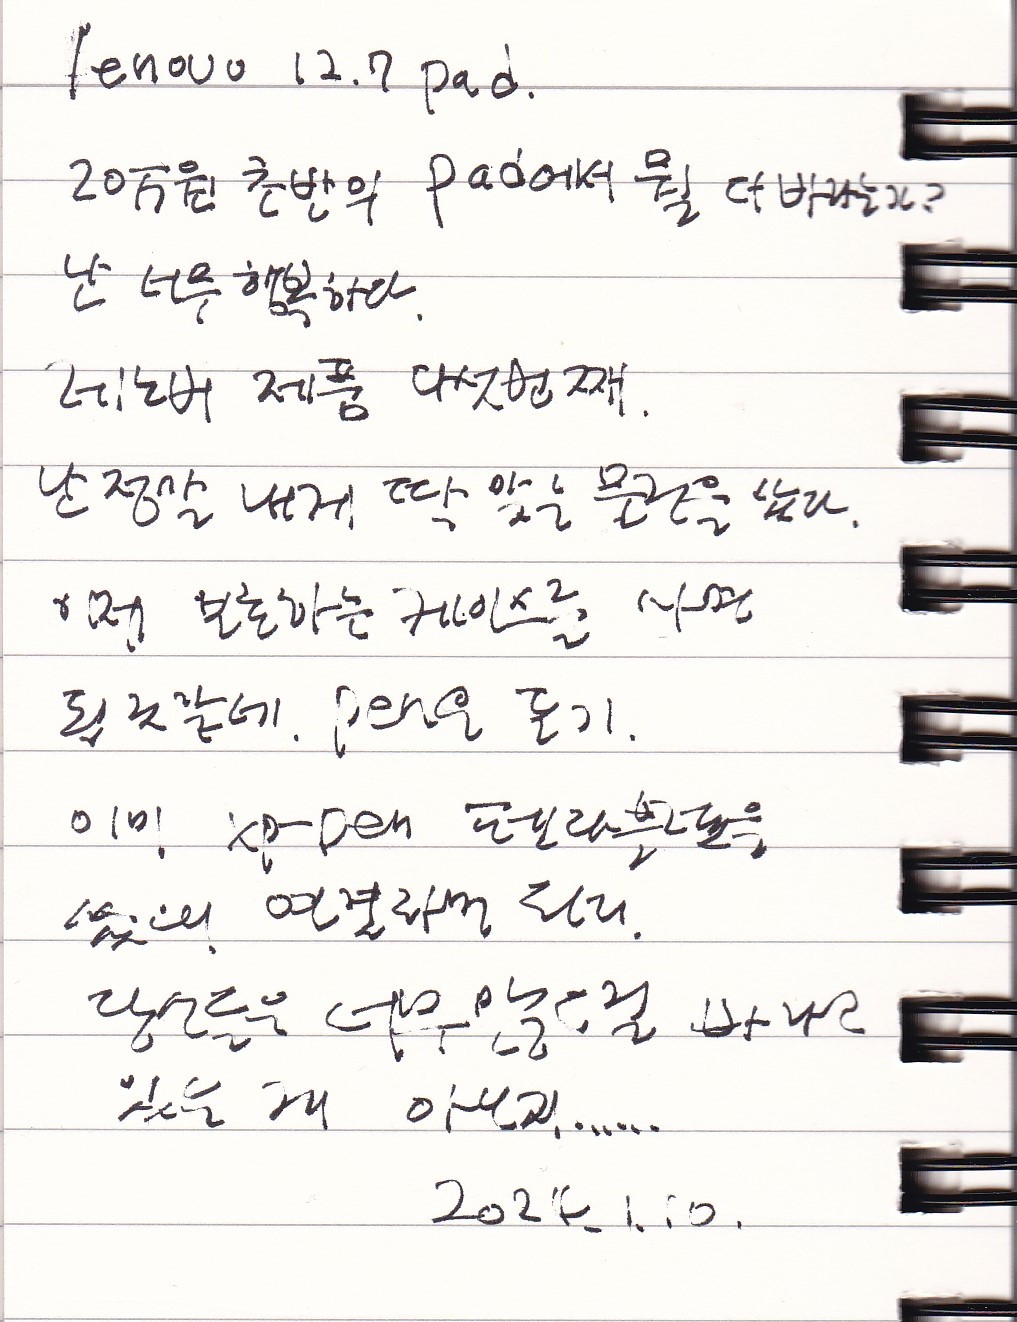 lenovo 12.7 pad.
20만원 초반의 pad에서 뭘 더 바라는가?
난 너무 행복하다.
레노버 제품 다섯번째.
난 정말 내게 딱 맞는 물건을 샀다.
이제 보호하는 케이스를 사면
될 것 같네. pen은 포기.
이미 xp-pen
연결하면 되지.
당신들은 너무 많은 걸 바라고
있는 게 아닌지......
2024. 1. 10.